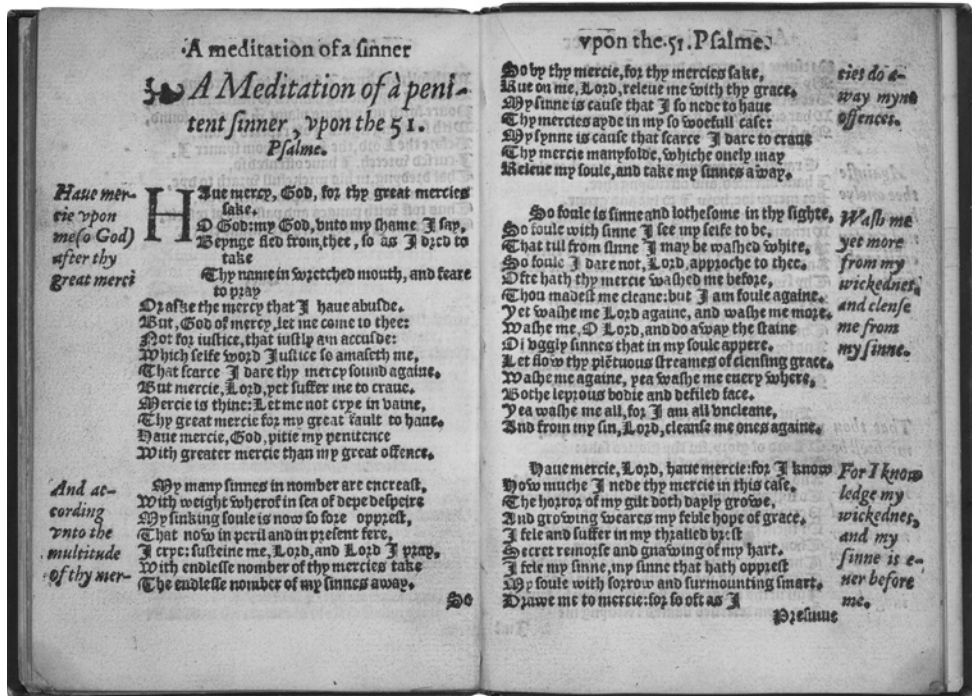 A meditation of a sinner
A Meditation of à peni-
tent sinner, vpon the 51.
Psalme.
Haue mer-
cie vpon
me (o God)
after thy
great merci
HAue mercy, God, for thy great mercies
sake.
O God: my God, vnto my shame I say,
Beynge fled from thee, so as I dred to
take
Thy name in wretched mouth, and feare
to pray
Or aske the mercy that I haue abusde.
But, God of mercy, let me come to thee:
Not for iustice, that iustly am accusde:
Which selfe word Iustice so amaseth me,
That scarce I dare thy mercy sound againe.
But mercie, Lord, yet suffer me to craue.
Mercie is thine: Let me not crye in vaine,
Thy great mercie for my great fault to haue.
Haue mercie, God, pitie my penitence
With greater mercie than my great offence.
And ac-
cording
vnto the
multitude
of thy mer-
My many sinnes in nomber are encreast,
With weight wherof in sea of depe despeire
My sinking soule is now so sore opprest,
That now in peril and in present fere,
I crye: susteine me, Lord, and Lord I pray,
With endlesse nomber of thy mercies take
The endlesse nomber of my sinnes away.
So
vpon the 51. Psalme.
So by thy mercie, for thy mercies sake,
Rue on me, Lord, releue me with thy grace.
My sinne is cause that I so nede to haue
Thy mercies ayde in my so woefull case:
My synne is cause that scarce I dare to craue
Thy mercie manyfolde, whiche onely may
Releue my soule, and take my sinnes away.
cies do a-
way myne
offences.
So foule is sinne and lothesome in thy sighte,
So foule with sinne I see my selfe to be,
That till from sinne I may be washed white,
So foule I dare not, Lord, approche to thee.
Ofte hath thy mercie washed me before,
Thou madest me cleane: but I am foule againe.
Yet washe me Lord againe, and washe me more.
Washe me, O Lord, and do away the staine
Of vggly sinnes that in my soule appere.
Let flow thy plẽtuous streames of clensing grace.
Washe me againe, yea washe me euery where,
Bothe leprous bodie and defiled face.
Yea washe me all, for I am all vncleane,
And from my sin, Lord, cleanse me ones againe.
Wash me
yet more
from my
wickednes,
and clense
me from
my sinne.
Haue mercie, Lord, haue mercie: for I know
How muche I nede thy mercie in this case.
The horror of my gilt doth dayly growe,
And growing weares my feble hope of grace.
I fele and suffer in my thralled brest
Secret remorse and gnawing of my hart.
I fele my sinne, my sinne that hath opprest
My soule with sorrow and surmounting smart.
Drawe me to mercie: for so oft as I
Presume
For I know
ledge my
wickednes,
and my
sinne is e-
uer before
me.